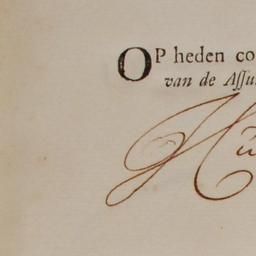 OP heden co
van de Aſſu